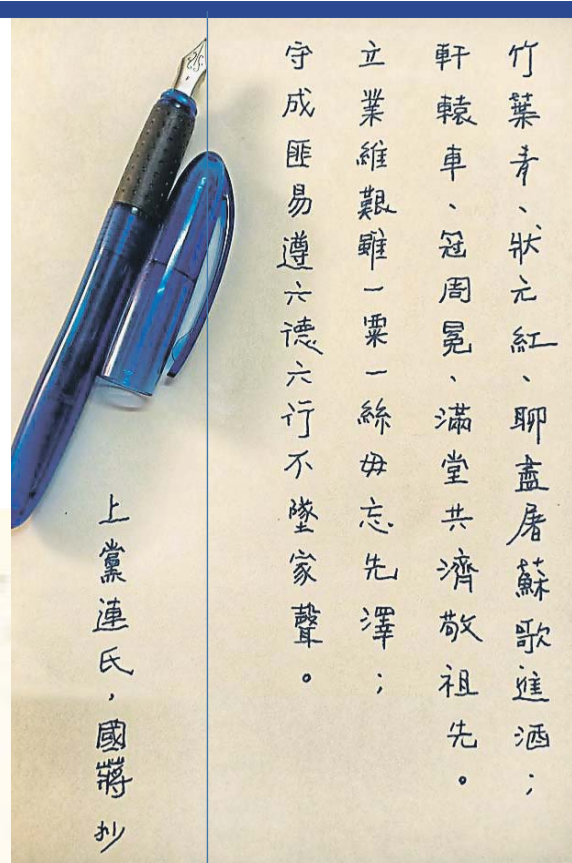 竹葉青、狀元紅、聊盡屠蘇歌進酒；
軒轅車、冠周冕、滿堂共濟敬祖先。
立業維艱雖一粟一絲毋忘先澤；
守成匪易遵六德六行不墜家聲。
上黨連氏，國蔣抄